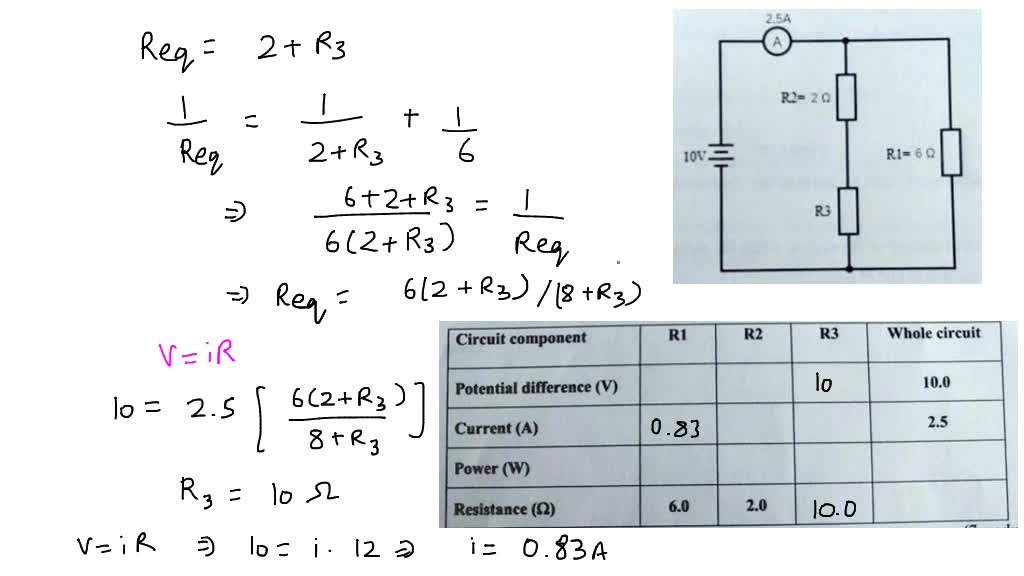 Req = 2 + R3
1/Req = 1/(2+R3) + 1/6
⇒ (6+2+R3)/(6(2+R3)) = 1/Req
⇒ Req = 6(2+R3)/(8+R3)
V=iR
10 = 2.5 [6(2+R3)/(8+R3)]
R3 = 10 Ω
V=iR ⇒ 10 = i · 12 ⇒ i = 0.83A
2.5A
A
R2= 2 Ω
10V
R1= 6 Ω
R3
Circuit component R1 R2 R3 Whole circuit
Potential difference (V) 10 10.0
Current (A) 0.83 2.5
Power (W)
Resistance (Ω) 6.0 2.0 10.0